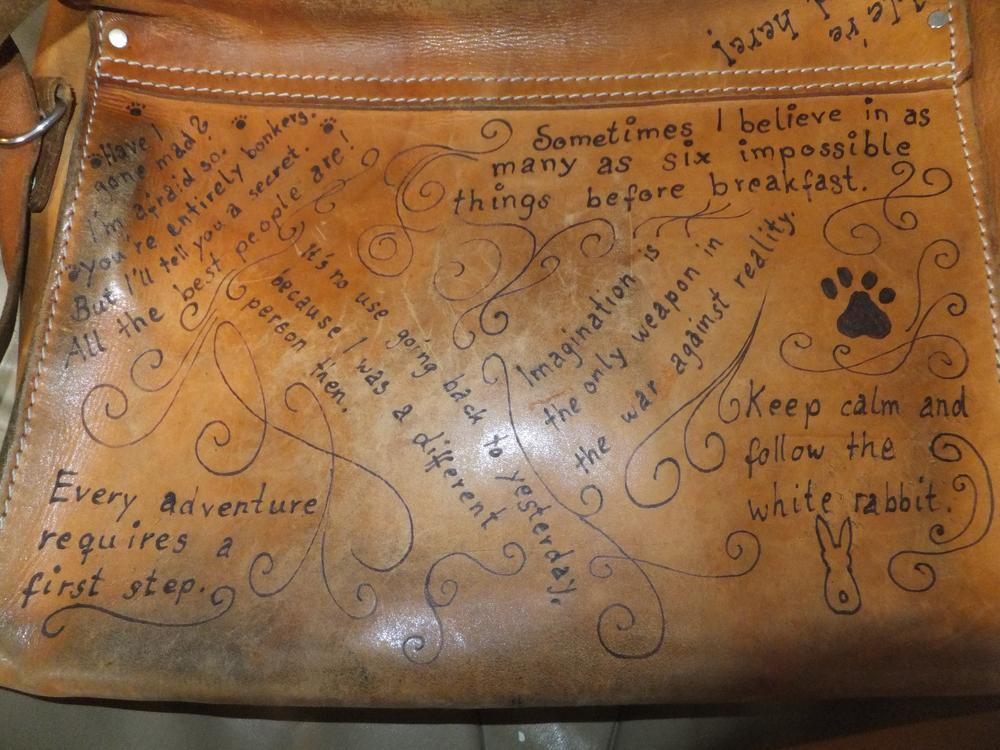 We're
here!
Have I
gone mad?
I'm afraid so.
you're entirely bonkers.
But I'll tell you a secret.
All the best people are!
Sometimes I believe in as
many as six impossible
things before breakfast.
It's no use going back to yesterday.
because I was a different
person then.
Imagination is
the only weapon in
the war against reality.
Keep calm and
follow the
white rabbit.
Every adventure
requires a
first step.